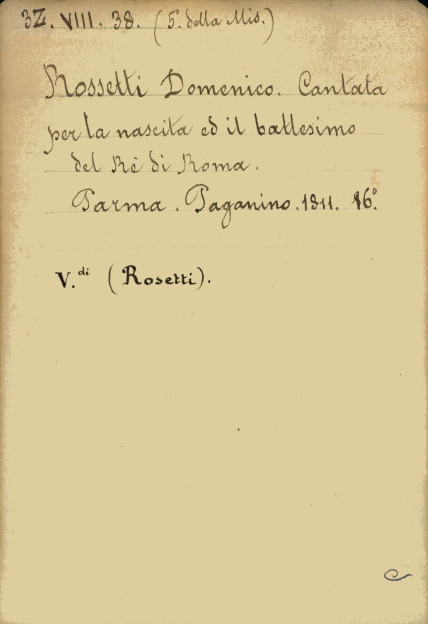 3Z. VIII. 38. (5ª della Mis.)
Rossetti Domenico. Cantata
per la nascita ed il battesimo
del Rè di Roma.
Parma. Paganino. 1811. 16º.
V.di (Rosetti).